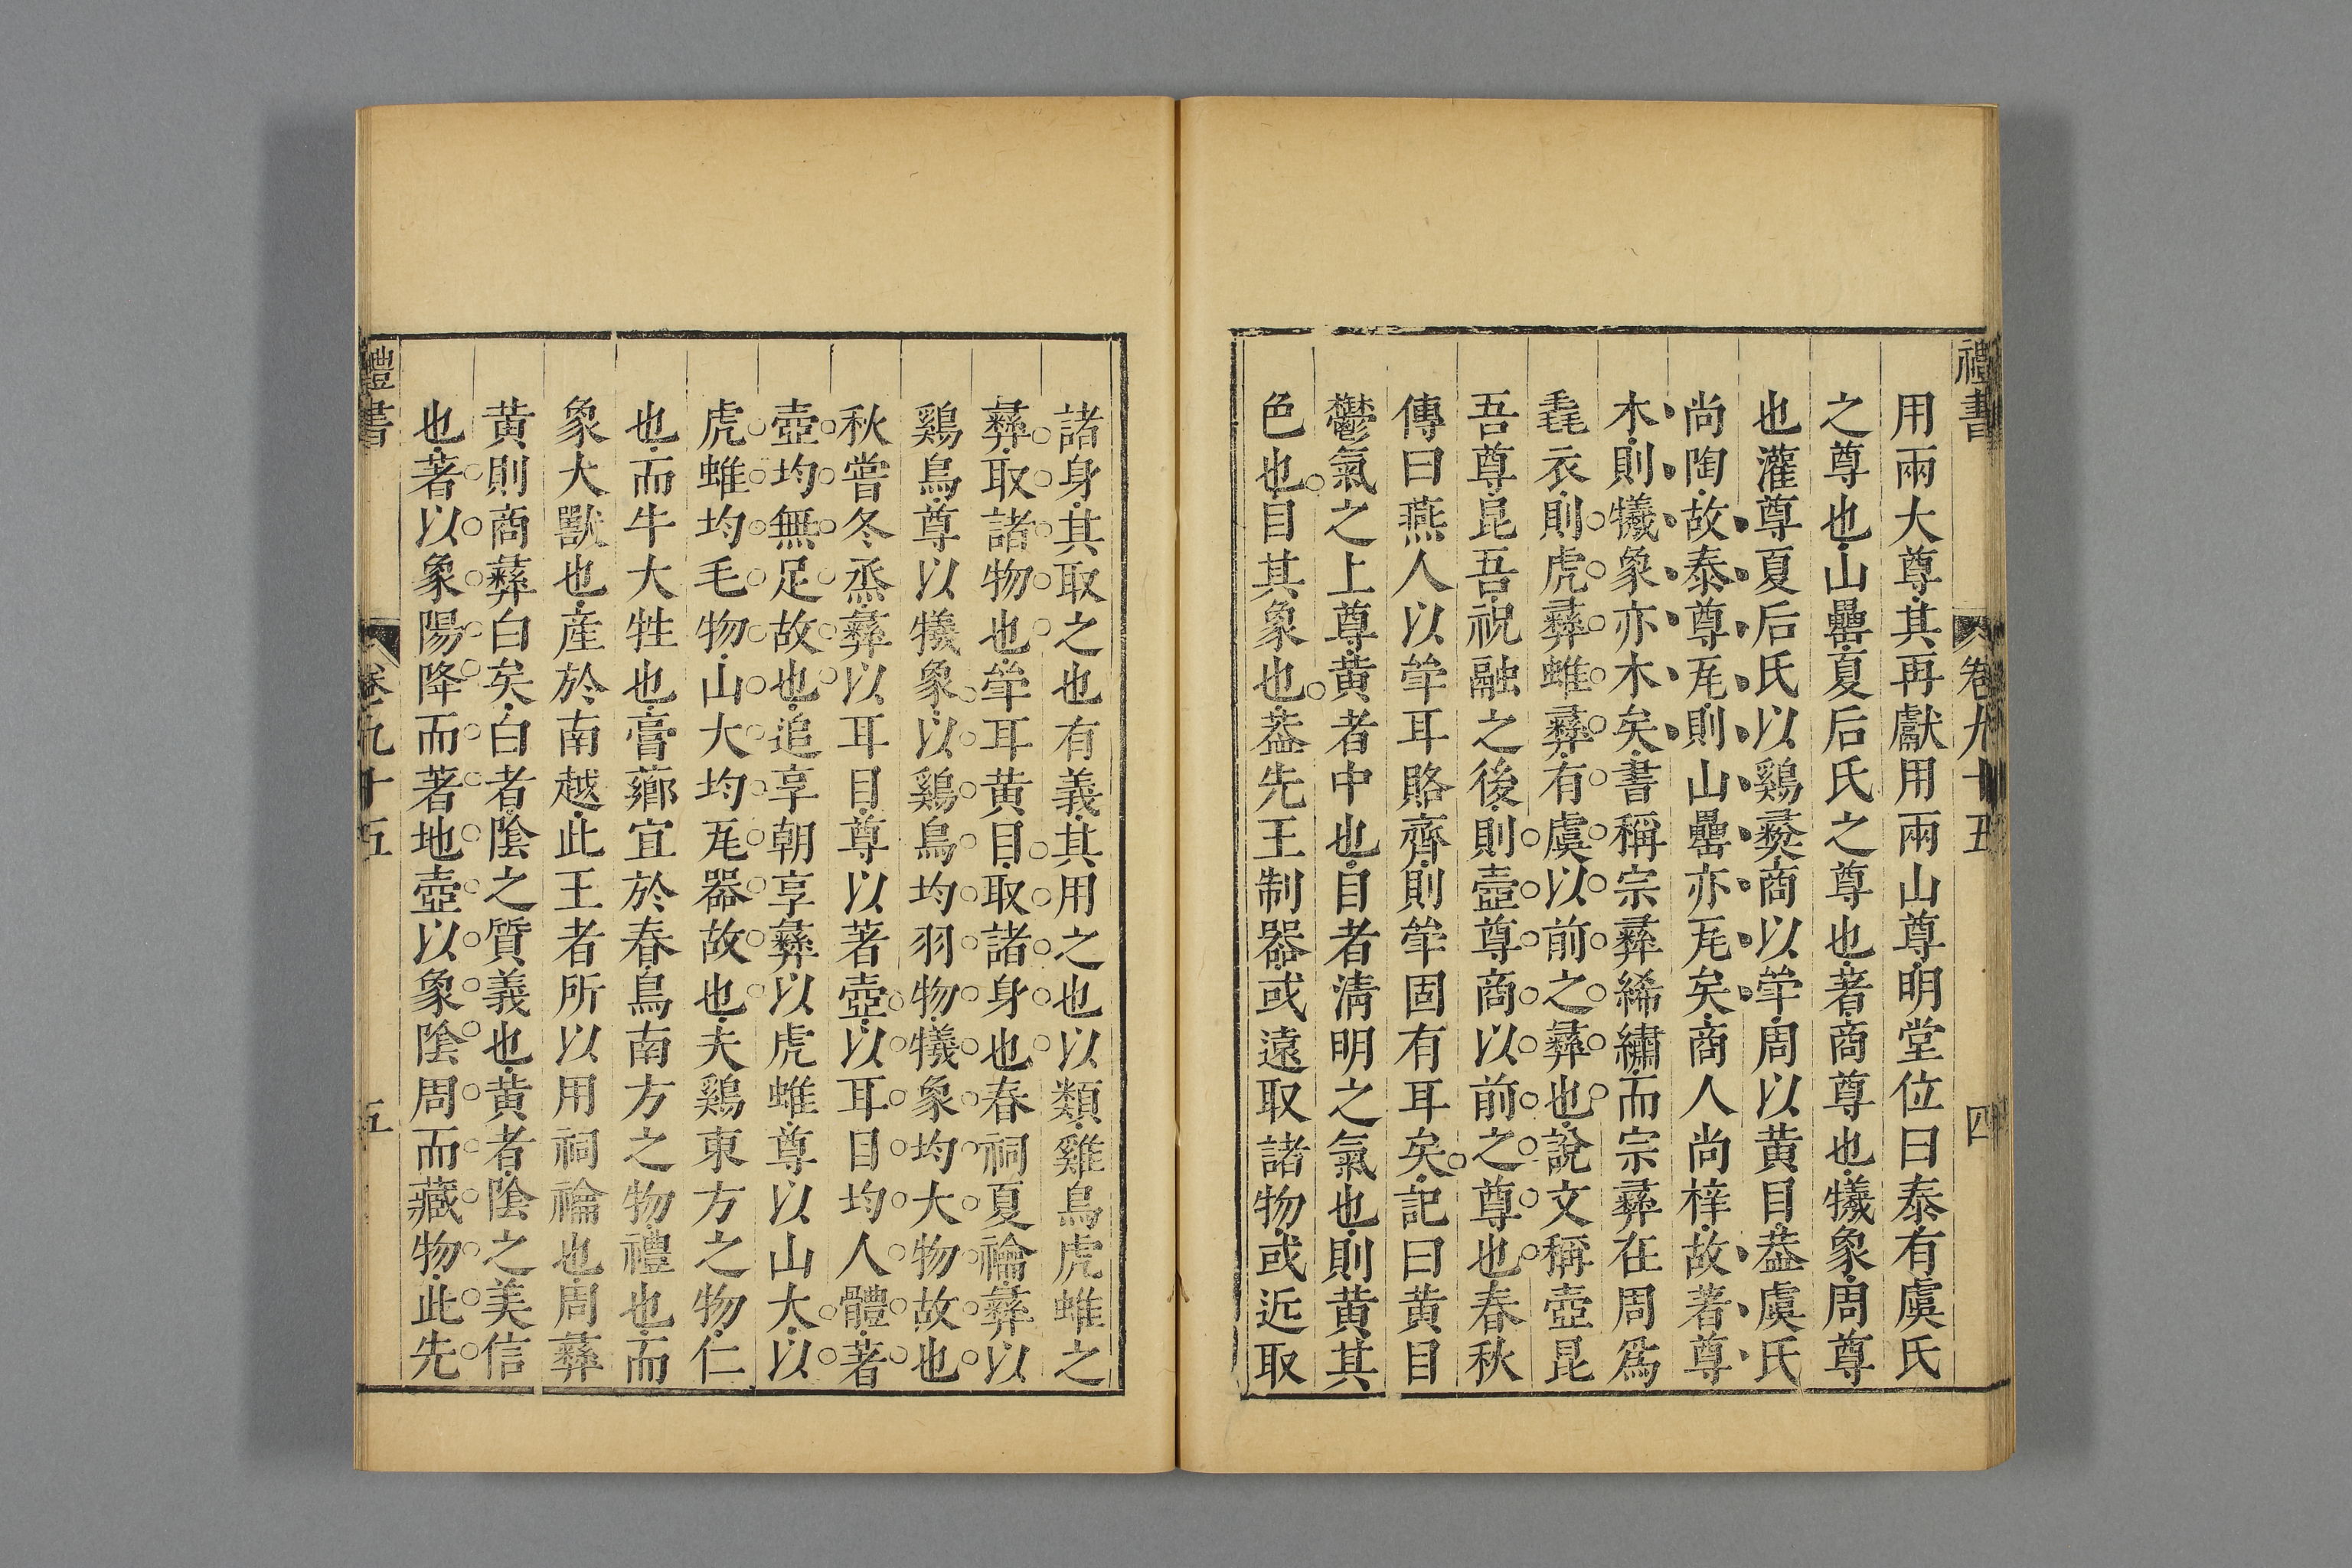 禮書
卷九十五
四
用兩大尊其再獻用兩山尊明堂位曰泰有虞氏
之尊也山罍夏后氏之尊也著商尊也犧象周尊
也灌尊夏后氏以鷄彛商以斝周以黄目葢虞氏
尚陶故泰尊瓦則山罍亦瓦矣商人尚梓故著尊
木則犧象亦木矣書稱宗彛絺繡而宗彛在周爲
毳衣則虎彛蜼彛有虞以前之彛也說文稱壺昆
吾尊昆吾祝融之後則壺尊商以前之尊也春秋
傳曰燕人以斝耳賂齊則斝固有耳矣記曰黄目
鬱氣之上尊黄者中也目者淸明之氣也則黄其
色也目其象也葢先王制器或遠取諸物或近取
諸身其取之也有義其用之也以類雞鳥虎蜼之
彛取諸物也斝耳黄目取諸身也春祠夏禴彛以
鷄鳥尊以犧象以鷄鳥均羽物犧象均大物故也
秋嘗冬烝彛以耳目尊以著壺以耳目均人體著
壺均無足故也追享朝享彛以虎蜼尊以山大以
虎蜼均毛物山大均瓦器故也夫鷄東方之物仁
也而牛大牲也膏薌宜於春鳥南方之物禮也而
象大獸也産於南越此王者所以用祠禴也周彛
黄則商彛白矣白者陰之質義也黄者陰之美信
也著以象陽降而著地壺以象陰周而藏物此先
禮書
卷九十五
五